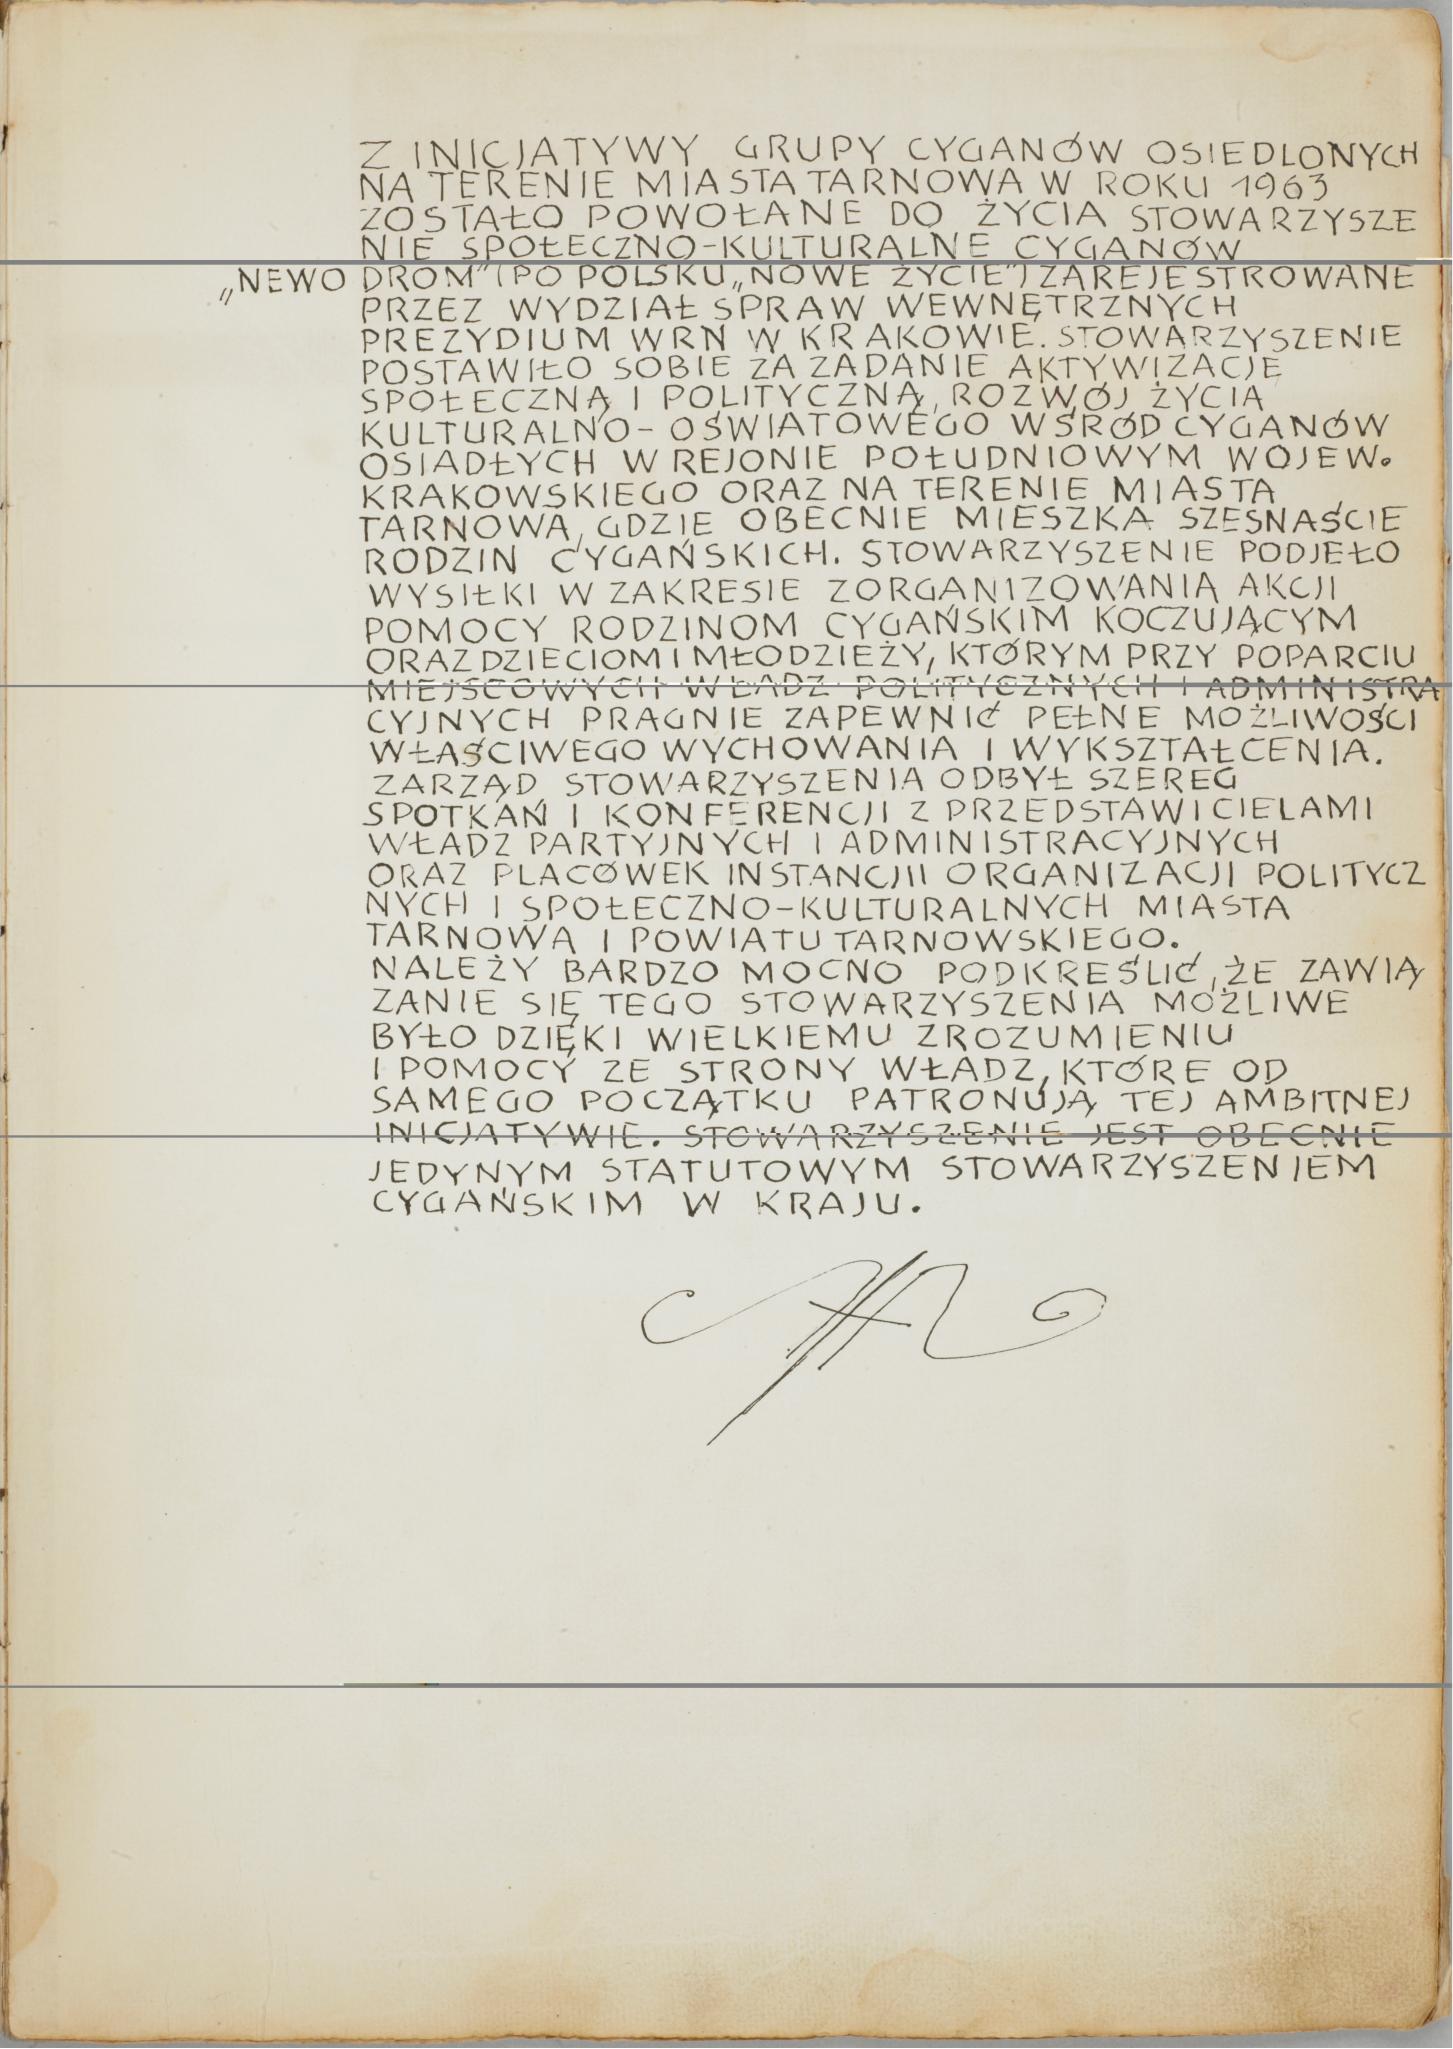 Z INICJATYWY GRUPY CYGANÓW OSIEDLONYCH
NA TERENIE MIASTA TARNOWA W ROKU 1963
ZOSTAŁO POWOŁANE DO ŻYCIA STOWARZYSZE
NIE SPOŁECZNO-KULTURALNE CYGANÓW
„NEWO DROM" (PO POLSKU „NOWE ŻYCIE") ZAREJESTROWANE
PRZEZ WYDZIAŁ SPRAW WEWNĘTRZNYCH
PREZYDIUM WRN W KRAKOWIE. STOWARZYSZENIE
POSTAWIŁO SOBIE ZA ZADANIE AKTYWIZACJE
SPOŁECZNĄ I POLITYCZNĄ, ROZWÓJ ŻYCIA
KULTURALNO-OŚWIATOWEGO WŚRÓD CYGANÓW
OSIADŁYCH W REJONIE POŁUDNIOWYM WOJEW.
KRAKOWSKIEGO ORAZ NA TERENIE MIASTA
TARNOWA, GDZIE OBECNIE MIESZKA SZESNAŚCIE
RODZIN CYGAŃSKICH. STOWARZYSZENIE PODJEŁO
WYSIŁKI W ZAKRESIE ZORGANIZOWANIA AKCJI
POMOCY RODZINOM CYGAŃSKIM KOCZUJĄCYM
ORAZ DZIECIOM I MŁODZIEŻY, KTÓRYM PRZY POPARCIU
MIEJSCOWYCH WŁADZ POLITYCZNYCH I ADMINISTRA
CYJNYCH PRAGNIE ZAPEWNIĆ PEŁNE MOŻLIWOŚCI
WŁAŚCIWEGO WYCHOWANIA I WYKSZTAŁCENIA.
ZARZĄD STOWARZYSZENIA ODBYŁ SZEREG
SPOTKAŃ I KONFERENCJI Z PRZEDSTAWICIELAMI
WŁADZ PARTYJNYCH I ADMINISTRACYJNYCH
ORAZ PLACÓWEK INSTANCJI I ORGANIZACJI POLITYCZ
NYCH I SPOŁECZNO-KULTURALNYCH MIASTA
TARNOWA I POWIATU TARNOWSKIEGO.
NALEŻY BARDZO MOCNO PODKREŚLIĆ, ŻE ZAWIĄ
ZANIE SIĘ TEGO STOWARZYSZENIA MOŻLIWE
BYŁO DZIĘKI WIELKIEMU ZROZUMIENIU
I POMOCY ZE STRONY WŁADZ, KTÓRE OD
SAMEGO POCZĄTKU PATRONUJĄ TEJ AMBITNEJ
INICJATYWIE. STOWARZYSZENIE JEST OBECNIE
JEDYNYM STATUTOWYM STOWARZYSZENIEM
CYGAŃSKIM W KRAJU.